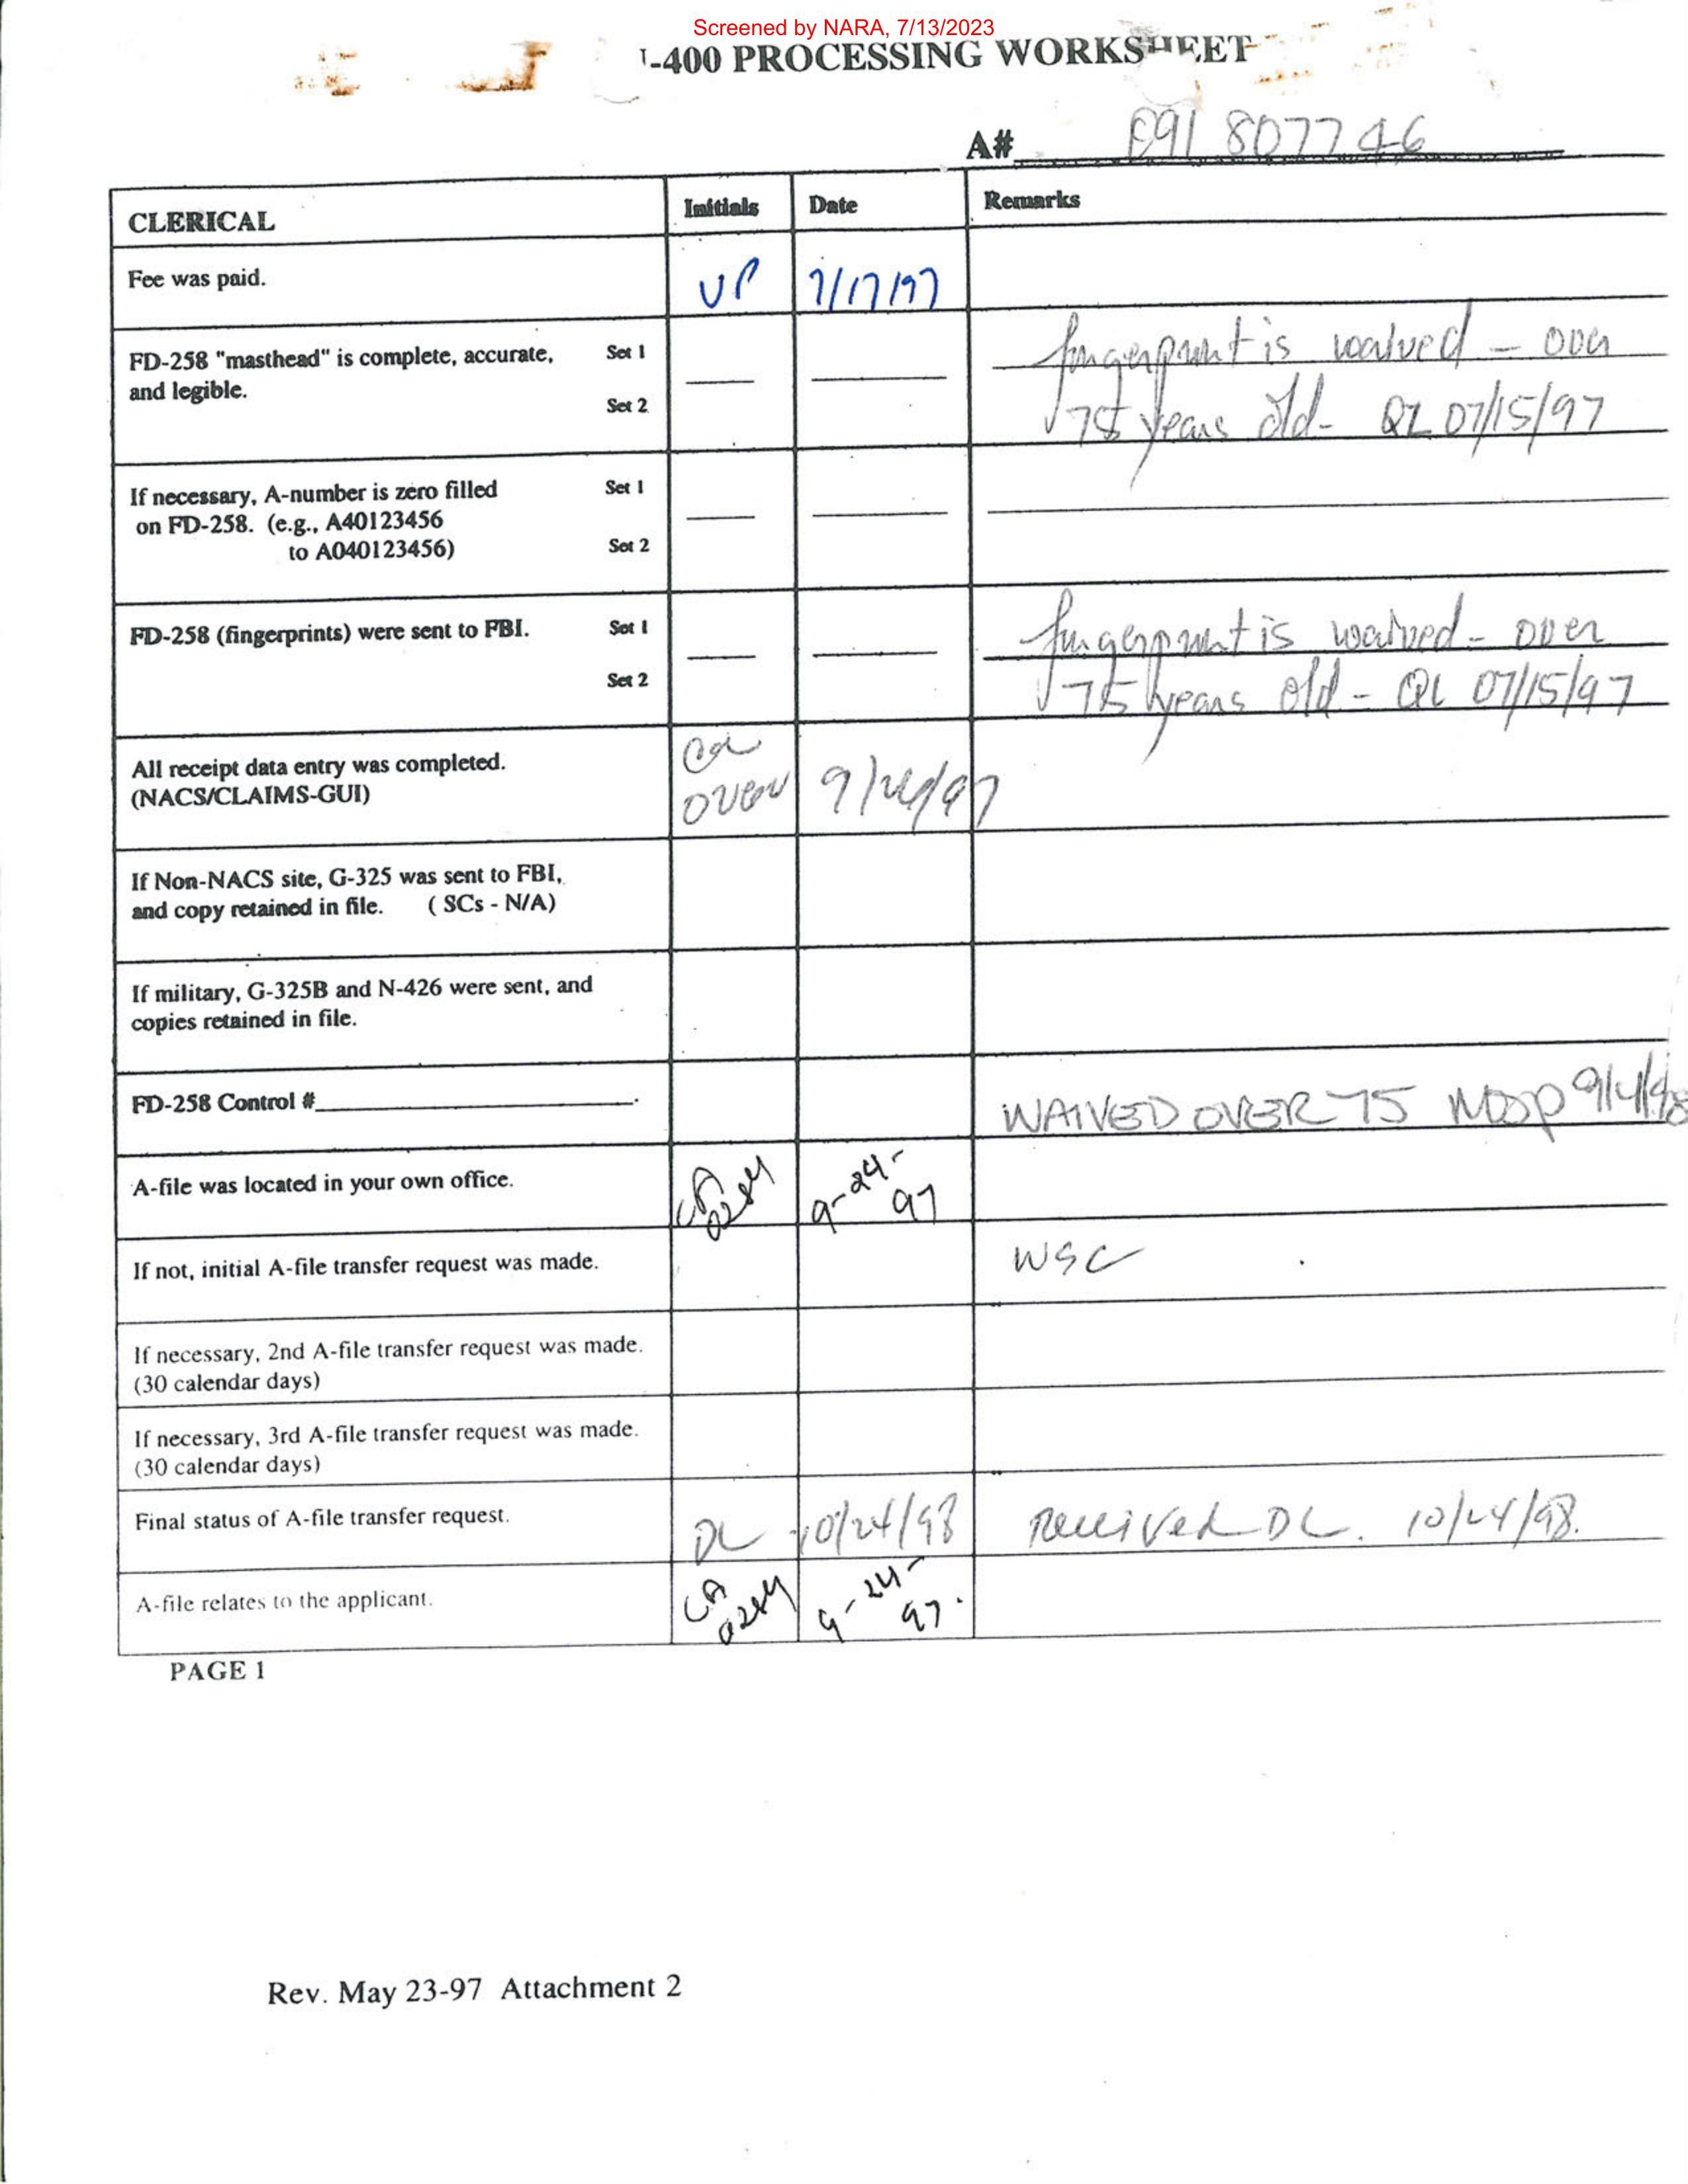 Screened by NARA, 7/13/2023
-400 PROCESSING WORKSHEET
A# 091 807746
CLERICAL Initials Date Remarks
Fee was paid. VP 7/17/97
FD-258 "masthead" is complete, accurate, Set 1 fingerprint is waived - over
and legible. Set 2 75 years old - QL 07/15/97
If necessary, A-number is zero filled Set 1
on FD-258. (e.g., A40123456
to A040123456) Set 2
FD-258 (fingerprints) were sent to FBI. Set 1 fingerprint is waived - over
Set 2 75 years old - QL 07/15/97
All receipt data entry was completed.
(NACS/CLAIMS-GUI) 9/24/97
If Non-NACS site, G-325 was sent to FBI,
and copy retained in file. ( SCs - N/A)
If military, G-325B and N-426 were sent, and
copies retained in file.
FD-258 Control # WAIVED OVER 75 9/4/98
A-file was located in your own office. CA 0284 9-24-97
If not, initial A-file transfer request was made. WSC
If necessary, 2nd A-file transfer request was made.
(30 calendar days)
If necessary, 3rd A-file transfer request was made.
(30 calendar days)
Final status of A-file transfer request. DL 10/24/98 Received DL. 10/24/98.
A-file relates to the applicant. CA 0284 9-24-97.
PAGE 1
Rev. May 23-97 Attachment 2